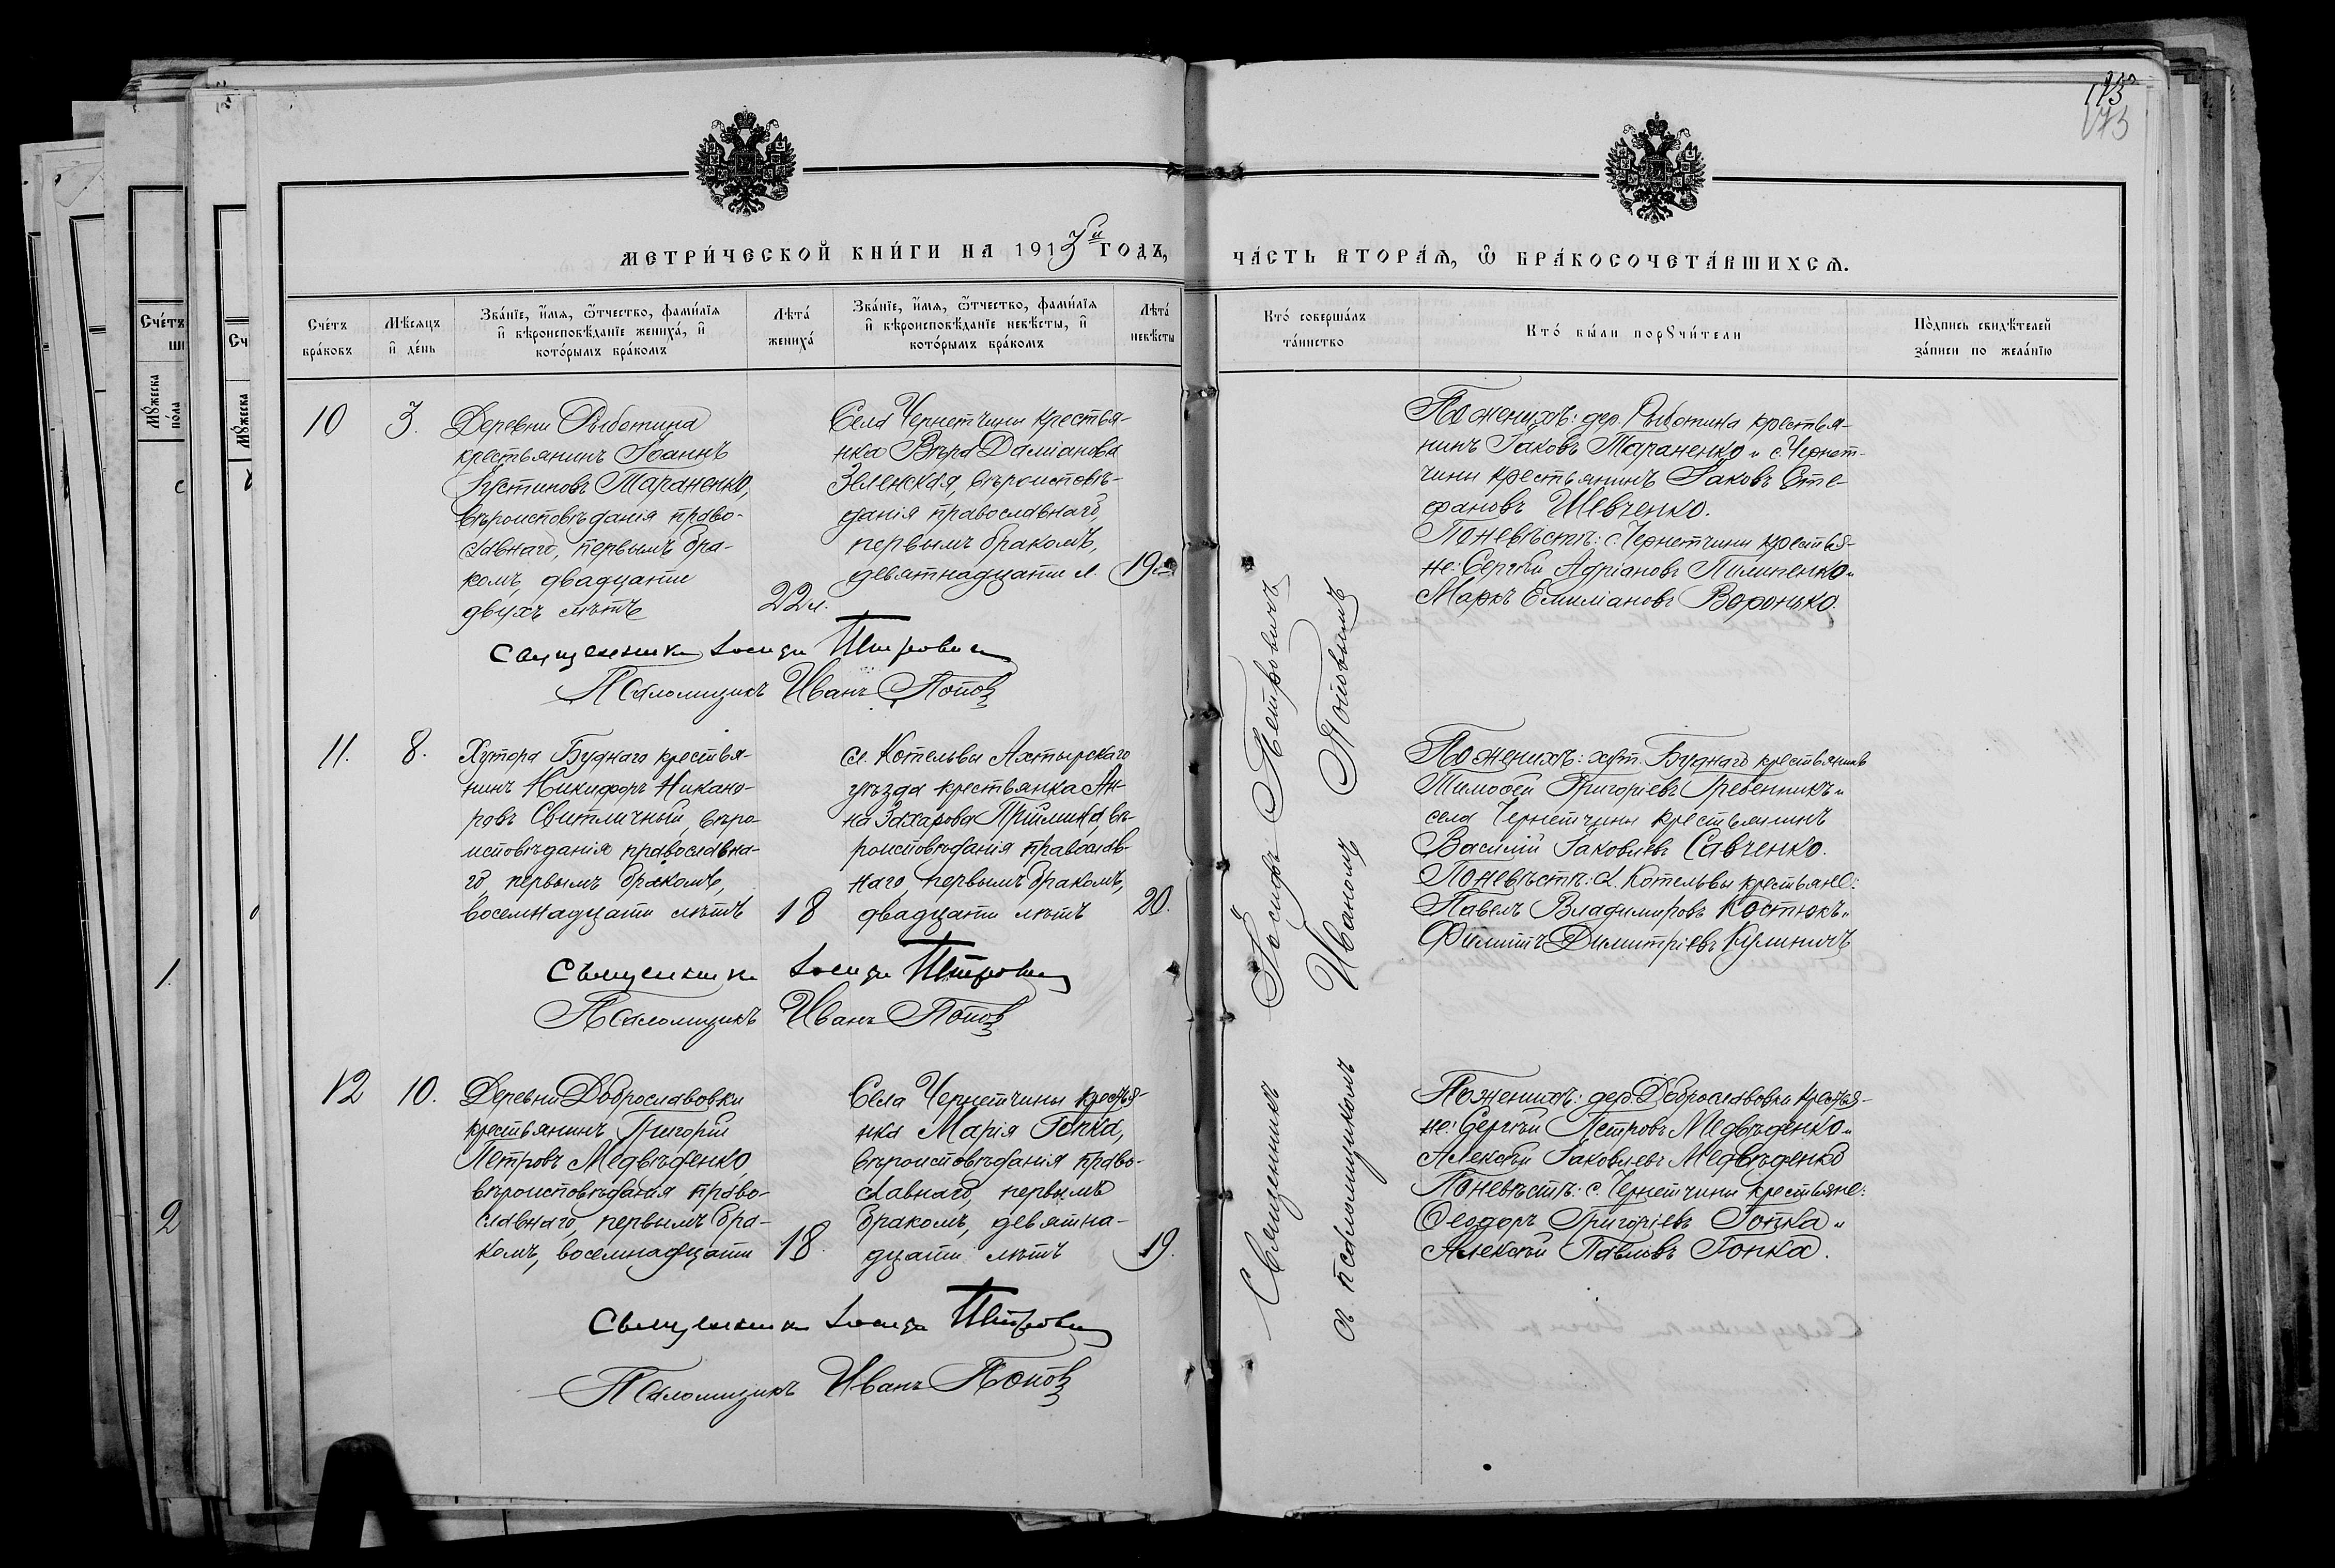 173
173
МЕТРИ́ЧЕСКОЙ КНИ́ГИ НА 1913й ГОДЪ,
ЧА́СТЬ ВТОРА́Ѧ, Ѽ БРА́КОСОЧЕТА́ВШИХСѦ.
Сче́тъ бра́ковъ
Мѣ́сяцъ и҆ де́нь
Зва́нїе, и҆́мѧ, ѻ҆́тчество, фами́лїѧ
и҆ вѣроисповѣ́данїе жениха́, и҆
кото́рымъ бра́комъ
Лѣта́ жениха́
Зва́нїе, и҆́мѧ, ѻ҆́тчество, фами́лїѧ
и҆ вѣроисповѣ́данїе невѣ́сты, и҆
кото́рымъ бра́комъ
Лѣта́ невѣ́сты
Кто́ соверша́лъ та́инство
Кто́ бы́ли порꙋчи́тели
По́дпись свидѣ́телей
за́писи по жела́нїю
10
3.
Деревни Рыботина
крестьянинъ Іоаннъ
Іустиновъ Тараненко,
вѣроисповѣданія право-
славнаго, первымъ бра-
комъ, двадцати
двухъ лѣтъ
22 л.
Села Чернетчины крестья-
нка Вѣра Даміанова
Зеленская, вѣроисповѣ-
данія православнаго,
первымъ бракомъ,
девятнадцати л.
19
Священникъ Іосифъ Петровичъ
Псаломщикъ Иванъ Поповъ
По женихѣ: дер. Рыботина крестья-
нинъ Іаковъ Тараненко и с. Чернет-
чины крестьянинъ Іаковъ Сте-
фановъ Шевченко.
По невѣстѣ: с. Чернетчины крестья-
не: Сергѣй Адріановъ Пилипенко и
Маркъ Емиліановъ Воронько.
11.
8.
Хутора Буднаго крестья-
нинъ Никифоръ Никано-
ровъ Свитличный, вѣро-
исповѣданія православна-
го, первымъ бракомъ,
восемнадцати лѣтъ
18
сл. Котельвы Ахтырскаго
уѣзда крестьянка Ан-
на Захарова Приймина, вѣ-
роисповѣданія православ-
наго, первымъ бракомъ,
двадцати лѣтъ
20.
Священникъ Іосифъ Петровичъ
Псаломщикъ Иванъ Поповъ
По женихѣ: хут. Буднаго крестьянинъ
Тимоѳей Григоріевъ Гребенникъ и
села Чернетчины крестьянинъ
Василій Іаковлевъ Савченко.
По невѣстѣ: сл. Котельвы крестьяне:
Павелъ Владимировъ Костюкъ и
Филиппъ Димитріевъ Кулиничъ
12
10.
Деревни Доброславовки
крестьянинъ Григорій
Петровъ Медвѣденко,
вѣроисповѣданія право-
славнаго, первымъ бра-
комъ, восемнадцати
18.
Села Чернетчины крестья-
нка Марія Гопка,
вѣроисповѣданія право-
славнаго, первымъ
бракомъ, девятна-
дцати лѣтъ
19.
Священникъ Іосифъ Петровичъ
Псаломщикъ Иванъ Поповъ
По женихѣ: дер. Доброславовки крестья-
не: Сергѣй Петровъ Медвѣденко и
Алексѣй Іаковлевъ Медвѣденко
По невѣстѣ: с. Чернетчины крестьяне:
Ѳеодоръ Григоріевъ Гопка и
Алексѣй Павловъ Гопка.
Священникъ Іосифъ Петровичъ
съ псаломщикомъ Иваномъ Поповымъ
Сче́тъ
Мꙋ́жеска по́ла
1.
2
Мꙋ́жеска